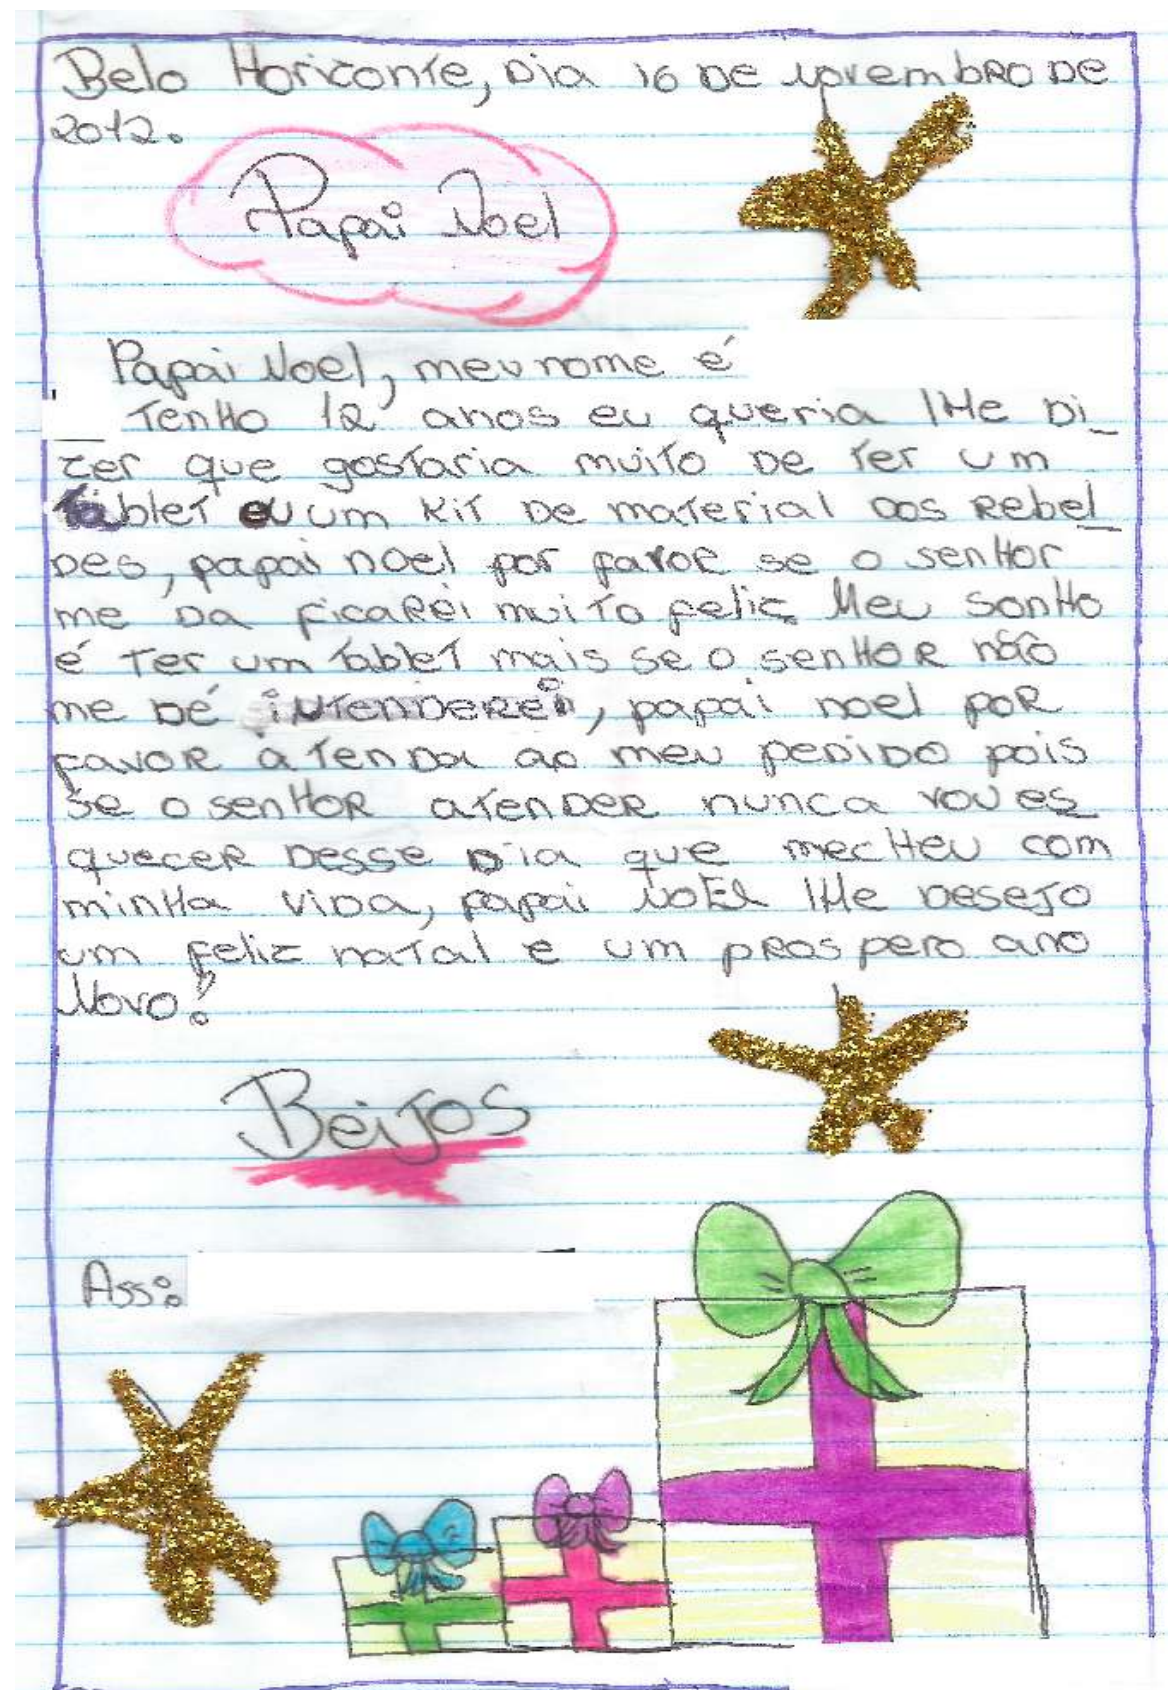 Belo Horizonte, Dia 16 DE novembro DE
2012.
Papai Noel
Papai Noel, meu nome é
Tenho 12 anos eu queria lhe Di_
zer que gostaria muito De Ter um
Tablet ou um Kit De material dos Rebel_
Des, papai noel por favor se o senhor
me Da ficarei muito feliz Meu sonho
é Ter um Tablet mais se o senhor não
me Dé intenderei, papai noel por
favor atenda ao meu pedido pois
se o senhor atender nunca vou es_
quecer Desse Dia que mecheu com
minha vida, papai Noel lhe Desejo
um feliz natal e um prospero ano
Novo!
Beijos
Ass: